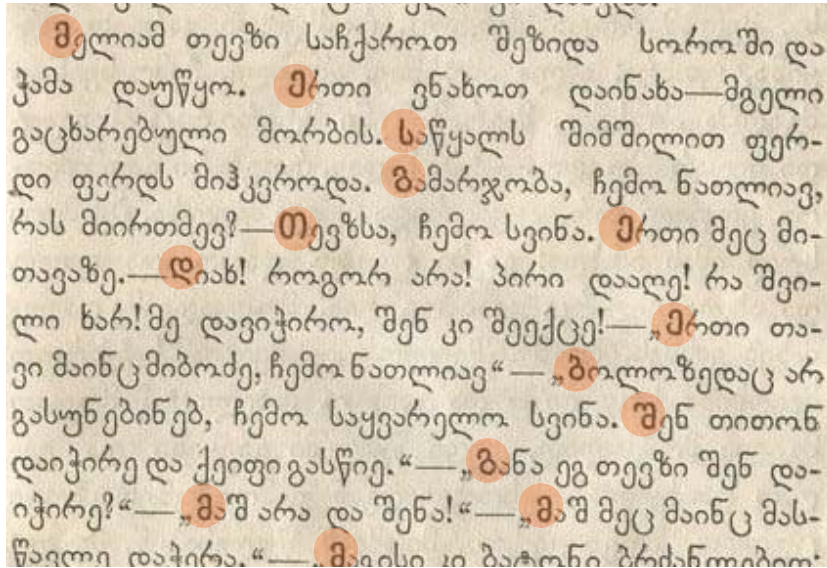 მელიამ თევზი საჩქაროთ შეზიდა სოროში და
ჭამა დაუწყო. ერთი ვნახოთ დაინახა—მგელი
გაცხარებული მორბის. საწყალს შიმშილით ფერ-
დი ფერდს მიჰკვროდა. გამარჯობა, ჩემო ნათლიავ,
რას მიირთმევ?—თევზსა, ჩემო სვინა. ერთი მეც მი-
თავაზე.—დიახ! როგორ არა! პირი დააღე! რა შვი-
ლი ხარ! მე დავიჭირო, შენ კი შეექცე!—„ერთი თა-
ვი მაინც მიბოძე, ჩემო ნათლიავ“—„ბოლოზედაც არ
გასუნებინებ, ჩემო საყვარელო სვინა. შენ თითონ
დაიჭირე და ქეიფი გასწიე.“—„განა ეგ თევზი შენ და-
იჭირე?“—„მაშ არა და შენა!“—„მაშ მეც მაინც მას-
წავლე დაჭერა.“—„მაგისი კი ბატონი ბრძანდებით·